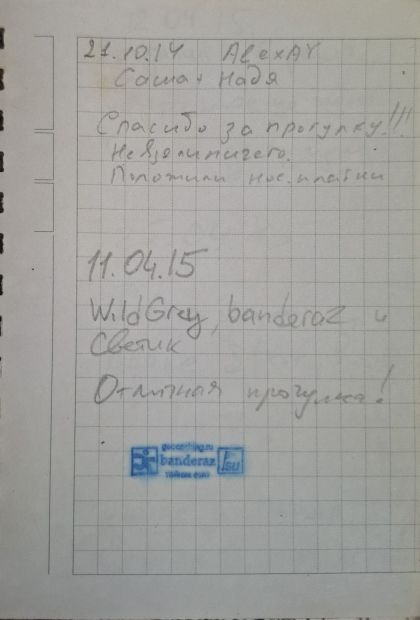 21.10.14 AlexAY
Саша + Надя
Спасибо за прогулку!!!
Не взяли ничего.
Положили нос. платки
11.04.15
WildGrey, banderaz и
Светик
Отличная прогулка!
geocaching.ru
banderaz
.su